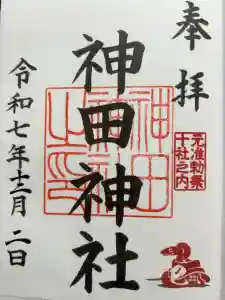 奉拝
神田神社
神田神社之印
元准勅祭
十社之内
巳
令和七年十二月二日